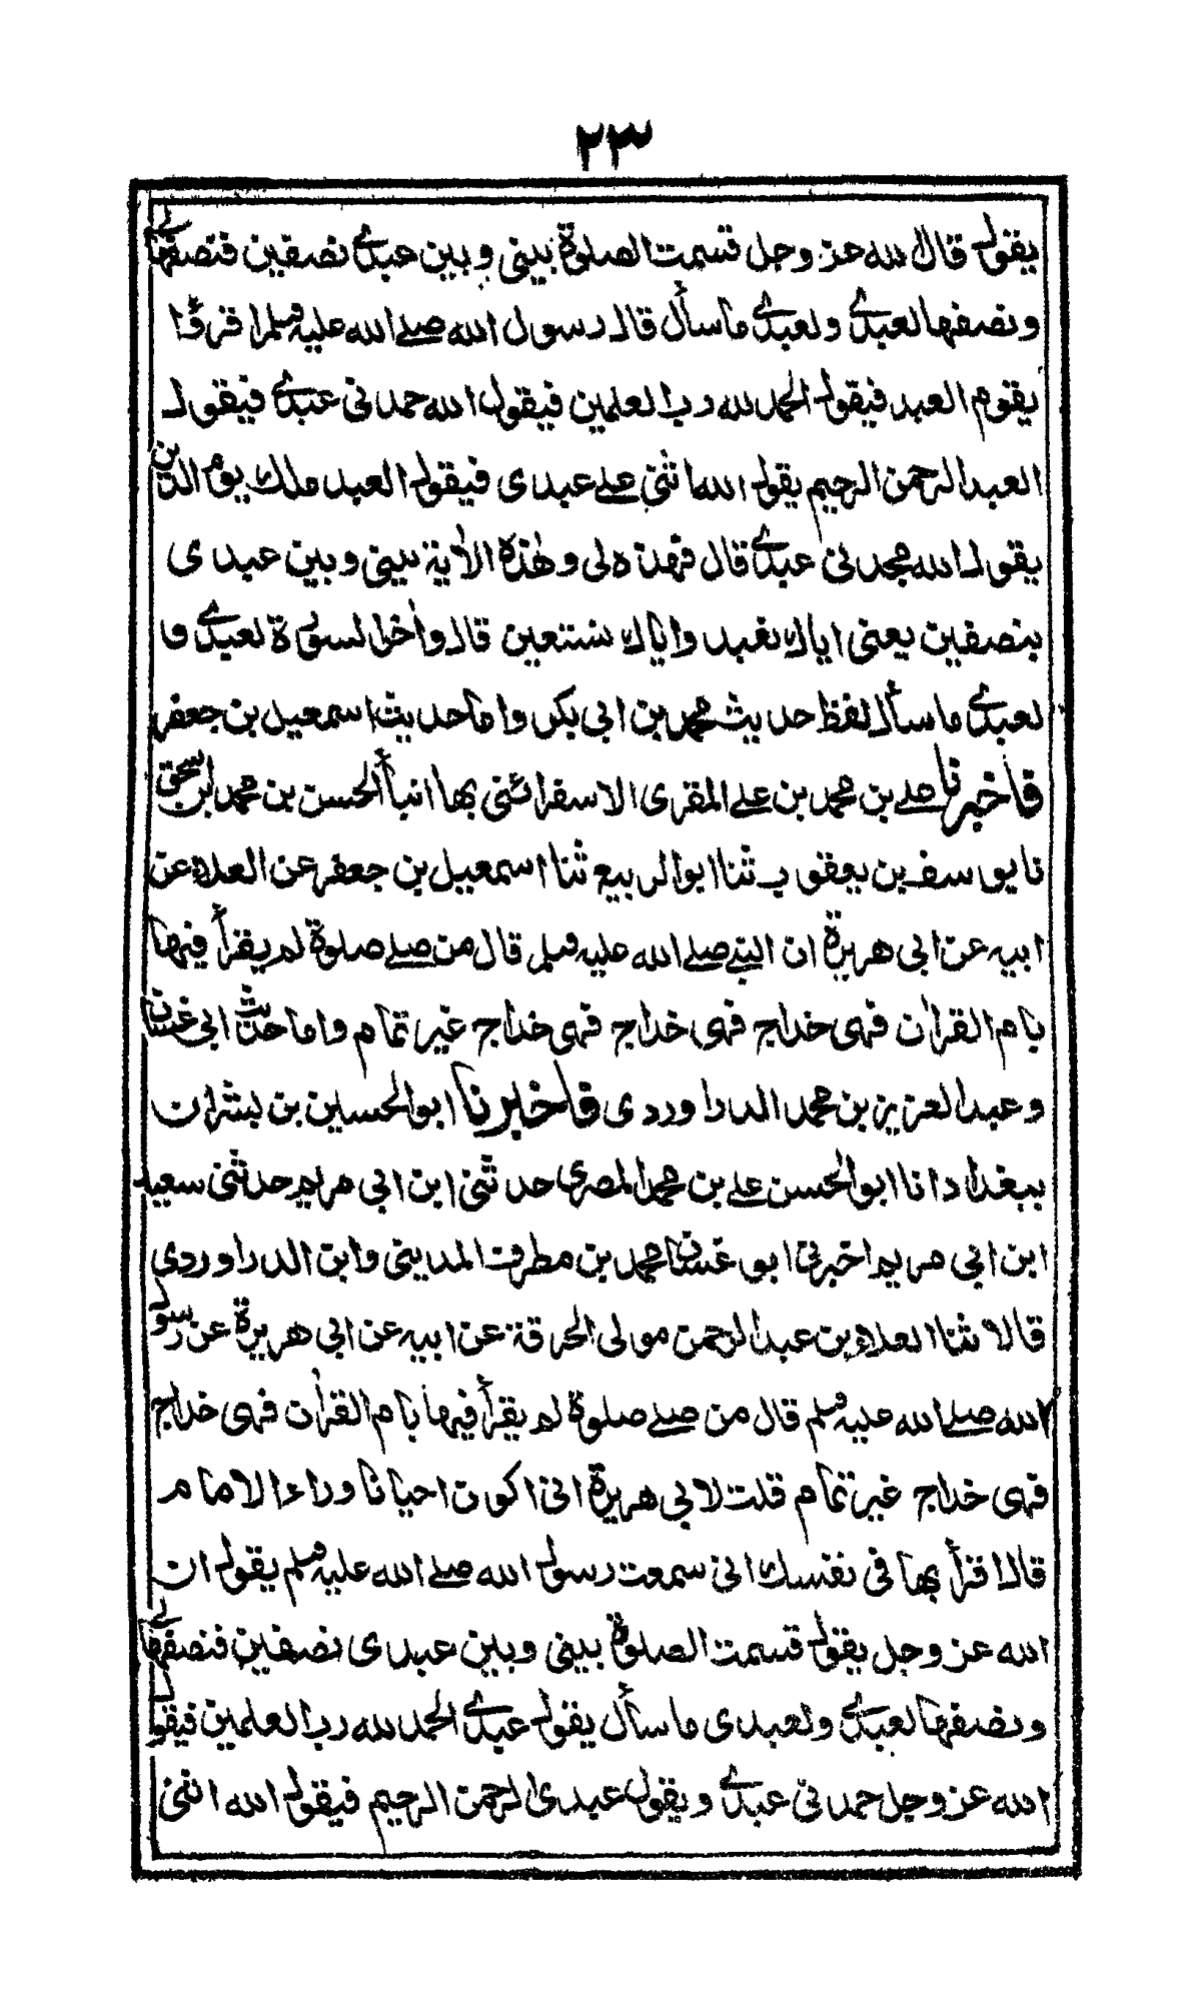 ٢٣
يقول قال الله عز وجل قسمت الصلوة بيني وبين عبدي نصفين فنصفها لي
ونصفها لعبدي ولعبدي ما سأل قال رسول الله صلى الله عليه وسلم اقرؤا
يقوم العبد فيقول الحمد لله رب العلمين فيقول الله حمدني عبدي فيقول
العبد الرحمن الرحيم يقول الله اثنى على عبدي فيقول العبد ملك يوم الدين
يقول الله مجدني عبدي قال فهذه لي وهذه الأية بيني وبين عبدي
بنصفين يعنى اياك نعبد واياك نستعين قال وأخر السورة لعبدي و
لعبدي ما سأل لفظ حديث محمد بن ابي بكر واما حديث اسمعيل بن جعفر
فاخبرنا علي بن محمد بن علي المقري الاسفرائني بها انبأ الحسن بن محمد بن اسحق
نا يوسف بن يعقوب ثنا ابو الربيع ثنا اسمعيل بن جعفر عن العلاء عن
ابيه عن ابي هريرة ان النبي صلى الله عليه وسلم قال من صلى صلوة لم يقرأ فيها
بام القران فهى خداج فهى خداج فهى خداج غير تمام واما حديث ابي غسان
وعبد العزيز بن محمد الدراوردي فاخبرنا ابو الحسين بن بشران
ببغداد انا ابو الحسن علي بن محمد المصري حدثني ابن ابي مريم حدثني سعيد
ابن ابي مريم اخبرني ابو غسان محمد بن مطرف المديني وابن الدراوردي
قالا ثنا العلاء بن عبد الرحمن مولى الحرقة عن ابيه عن ابي هريرة عن رسول
الله صلى الله عليه وسلم قال من صلى صلوة لم يقرأ فيها بام القران فهى خداج
فهى خداج غير تمام قلت لابي هريرة اني اكون احيانا وراء الامام
قال اقرأ بها في نفسك اني سمعت رسول الله صلى الله عليه وسلم يقول ان
الله عز وجل يقول قسمت الصلوة بيني وبين عبدي نصفين فنصفها لي
ونصفها لعبدي ولعبدي ما سأل يقول عبدي الحمد لله رب العلمين فيقول
الله عز وجل حمدني عبدي ويقول عبدي الرحمن الرحيم فيقول الله اثنى